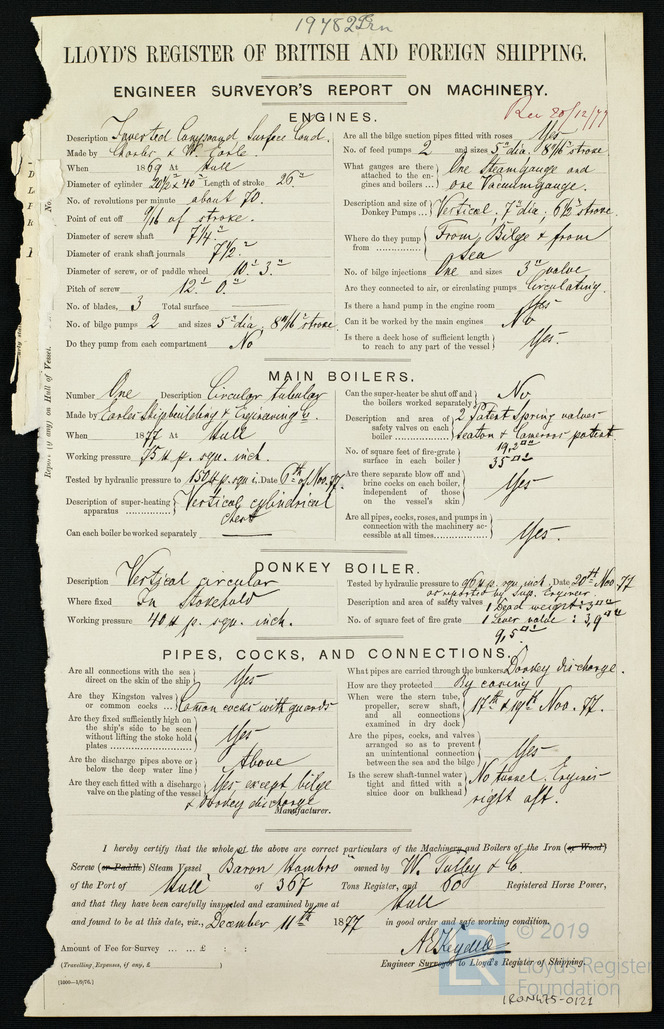 19782 Irn
LLOYD'S REGISTER OF BRITISH AND FOREIGN SHIPPING.
ENGINEER SURVEYOR'S REPORT ON MACHINERY.
Rec 20/12/77
ENGINES.
Description Inverted Compound Surface Cond.
Made by Charles & W. Earle.
When 1869 At Hull
Diameter of cylinder 20½ & 40" Length of stroke 26"
No. of revolutions per minute about 70.
Point of cut off 9/16 of stroke.
Diameter of screw shaft 7¼"
Diameter of crank shaft journals 7½"
Diameter of screw, or of paddle wheel 10.. 3."
Pitch of screw 12.. 0."
No. of blades, 3 Total surface
No. of bilge pumps 2 and sizes 5" dia; 8 11/16" stroke.
Do they pump from each compartment No
Are all the bilge suction pipes fitted with roses Yes
No. of feed pumps 2 and sizes 5" dia; 8 11/16" stroke
What gauges are there attached to the engines and boilers ... One Steam gauge and one Vacuum gauge.
Description and size of Donkey Pumps ... Vertical; 7" dia; 6½" stroke.
Where do they pump from From Bilge & from Sea
No. of bilge injections One and sizes 3" valve
Are they connected to air, or circulating pumps Circulating.
Is there a hand pump in the engine room Yes
Can it be worked by the main engines No
Is there a deck hose of sufficient length to reach to any part of the vessel Yes.
Report (if any) on Hull of Vessel.
No.
MAIN BOILERS.
Number One Description Circular tubular
Made by Earles Shipbuilding & Engineering Co.
When 1877 At Hull
Working pressure 75 # p. squ. inch.
Tested by hydraulic pressure to 150 # p. squ. i. Date 6th of Nov. 77.
Description of super-heating apparatus Vertical cylindrical chest
Can each boiler be worked separately
Can the super-heater be shut off and the boilers worked separately No
Description and area of safety valves on each boiler 2 Patent Spring valves Seaton & Camerons patent 19,2""
No. of square feet of fire-grate surface in each boiler 35""
Are there separate blow off and brine cocks on each boiler, independent of those on the vessel's skin Yes
Are all pipes, cocks, roses, and pumps in connection with the machinery accessible at all times Yes.
DONKEY BOILER.
Description Vertical circular
Where fixed In Stokehold
Working pressure 40 # p. squ. inch.
Tested by hydraulic pressure to 96 # p. squ. inch, Date 20th Nov. 77
as reported by Sup. Engineer
Description and area of safety valves 1 Dead weight: 3""
1 Lever valve : 3,9""
No. of square feet of fire grate 9,5""
PIPES, COCKS, AND CONNECTIONS.
Are all connections with the sea direct on the skin of the ship Yes
Are they Kingston valves or common cocks Comon cocks with guards
Are they fixed sufficiently high on the ship's side to be seen without lifting the stoke hold plates Yes
Are the discharge pipes above or below the deep water line Above
Are they each fitted with a discharge valve on the plating of the vessel Yes except bilge & Donkey discharge
Manufacturer.
What pipes are carried through the bunkers Donkey discharge.
How are they protected By casing.
When were the stern tube, propeller, screw shaft, and all connections examined in dry dock 17th & 19th Nov. 77.
Are the pipes, cocks, and valves arranged so as to prevent an unintentional connection between the sea and the bilge Yes
Is the screw shaft-tunnel water tight and fitted with a sluice door on bulkhead No tunnel. Engines right aft.
I hereby certify that the whole of the above are correct particulars of the Machinery and Boilers of the Iron (or Wood)
Screw (or Paddle) Steam Vessel "Baron Hambro" owned by W. Tulley & C.
of the Port of Hull of 367 Tons Register, and 60 Registered Horse Power,
and that they have been carefully inspected and examined by me at Hull
and found to be at this date, viz., December 11th 1877 in good order and safe working condition.
Amount of Fee for Survey ... ... £ : :
(Travelling, Expenses, if any, £ )
Engineer Surveyor to Lloyd's Register of Shipping.
[1000—1/9/76.]
LR © 2019
Lloyd's Register
Foundation
IRON475-0121